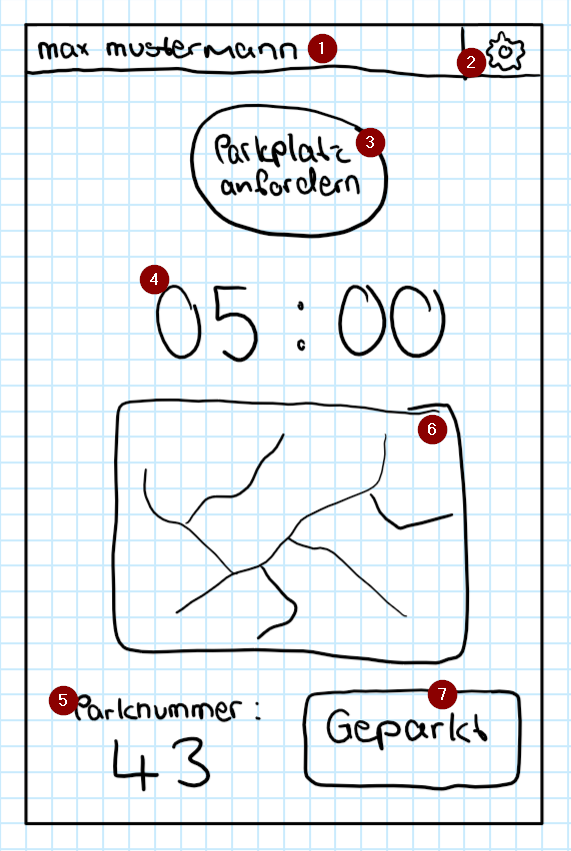 max mustermann 1
2
Parkplatz 3
anfordern
4
05:00
6
5 Parknummer:
43
7
Geparkt